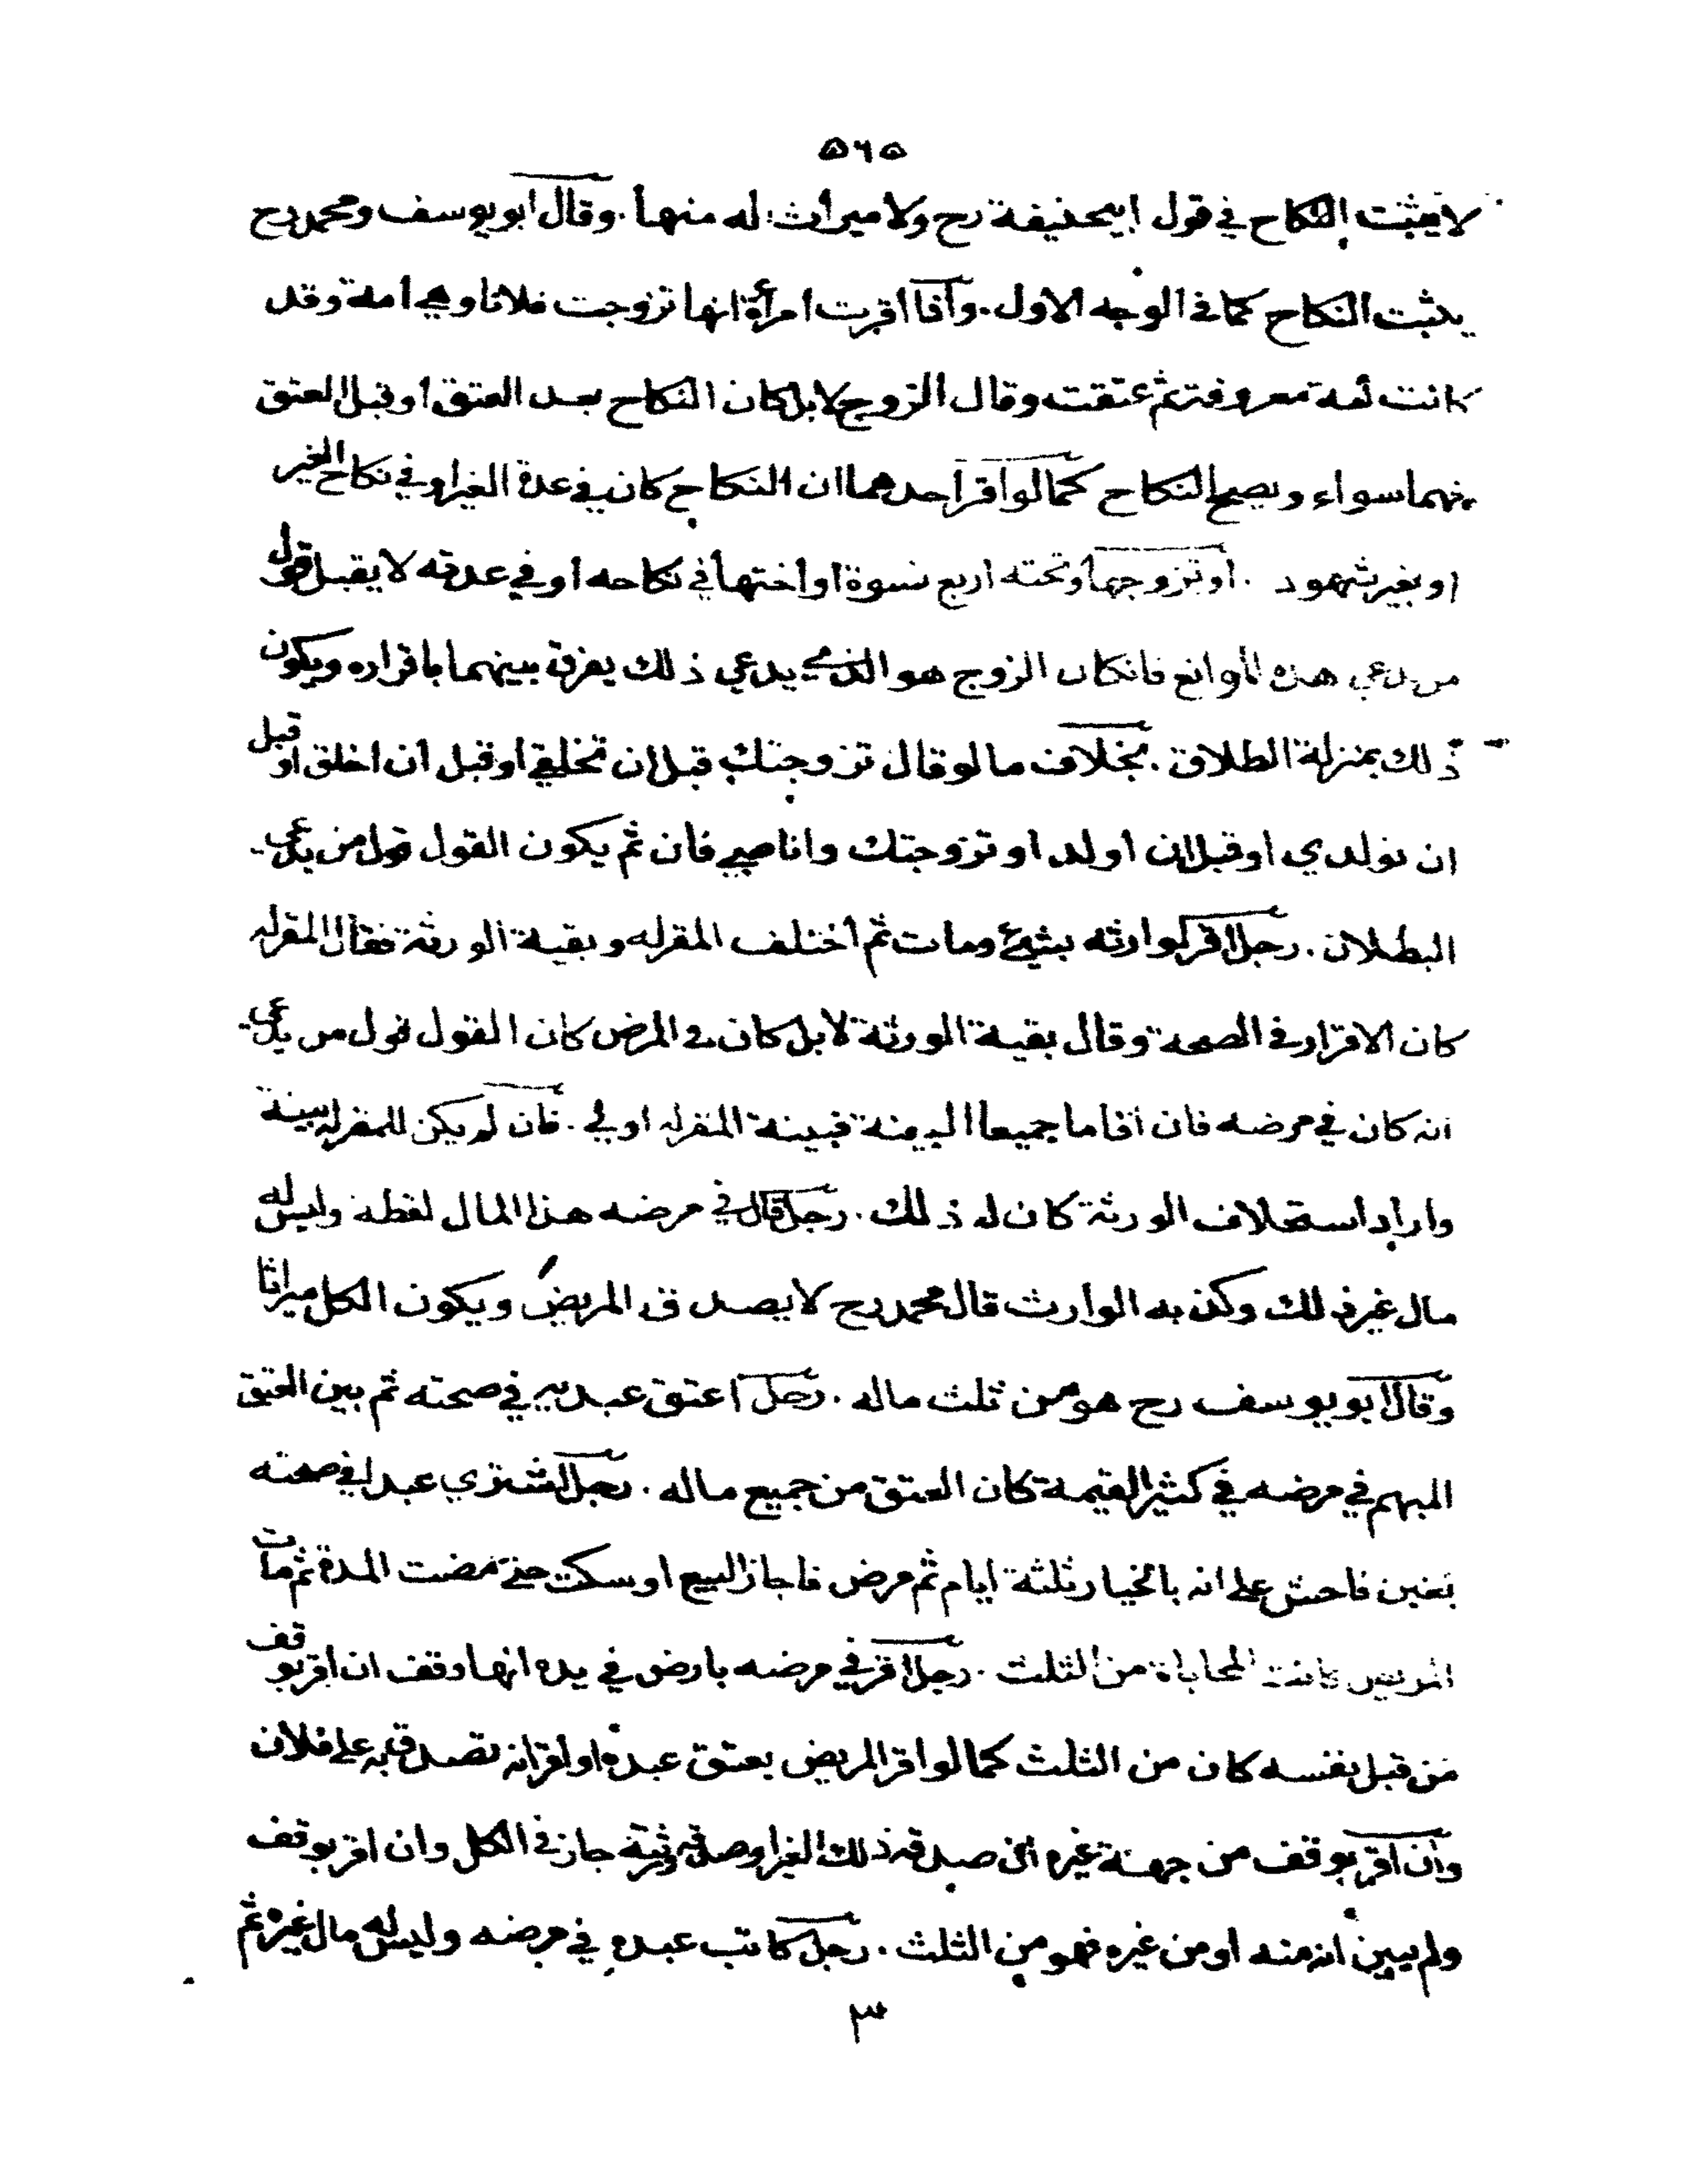 ٥٦٥
لا يثبت النكاح في قول ابيحنيفة رح ولا ميراث له منها . وقال ابو يوسف ومحمد رح
يثبت النكاح كما في الوجه الاول . واذا اقرت امرأة انها تزوجت فلانا وهي امة وقد
كانت أمة معروفة ثم عتقت وقال الزوج لا بل كان النكاح بعد العتق او قبل العتق
فهما سواء ويصح النكاح كما لو اقر احدهما ان النكاح كان في عدة الغير او في نكاح الغير
او بغير شهود . او تزوجها وتحته اربع نسوة او اختها في نكاحه او في عدته لا يقبل قول
من يدعي هذه الموانع فان كان الزوج هو الذي يدعي ذلك يفرق بينهما باقراره ويكون
ذلك بمنزلة الطلاق . بخلاف ما لو قال تزوجتك قبل ان تخلقي او قبل ان اخلق او قبل
ان تولدي او قبل ان اولد او تزوجتك وانا صبي فان ثم يكون القول قول من يدعي
البطلان . رجل اقر لوارثه بشيء ومات ثم اختلف المقر له وبقية الورثة فقال المقر له
كان الاقرار في الصحة وقال بقية الورثة لا بل كان في المرض كان القول قول من يدعي
انه كان في مرضه فان اقاما جميعا البينة فبينة المقر له اولى . فان لم يكن للمقر له بينة
واراد استحلاف الورثة كان له ذلك . رجل قال في مرضه هذا المال لقطة وليس له
مال غير ذلك وكذبه الوارث قال محمد رح لا يصدق المريض ويكون الكل ميراثا
وقال ابو يوسف رح هو من ثلث ماله . رجل اعتق عبديه في صحته ثم بين العتق
المبهم في مرضه في كثير القيمة كان العتق من جميع ماله . رجل اشتري عبدا في صحته
بغبن فاحش على انه بالخيار ثلثة ايام ثم مرض فاجاز البيع او سكت حتى مضت المدة ثم مات
المريض كانت المحاباة من الثلث . رجل اقر في مرضه بارض في يده انها وقف ان اقر بوقف
من قبل نفسه كان من الثلث كما لو اقر المريض بعتق عبده او اقر انه تصدق به على فلان
وان اقر بوقف من جهة غيره ان صدقه ذلك الغير او صدقه ورثته جاز في الكل وان اقر بوقف
ولم يبين انه منه او من غيره فهو من الثلث . رجل كاتب عبده في مرضه وليس له مال غيره ثم
٣